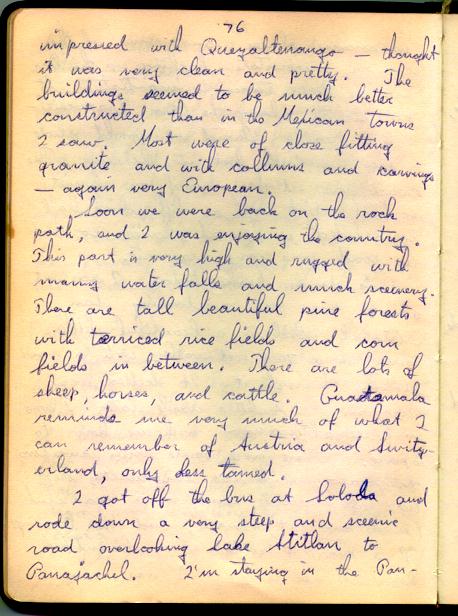 76
impressed with Quezaltenango — thought
it was very clean and pretty. The
buildings seemed to be much better
constructed than in the Mexican towns
I saw. Most were of close fitting
granite and with collumns and carvings
— again very European.
Soon we were back on the rock
path, and I was enjoying the country.
This part is very high and rugged with
many water falls and much scenery.
There are tall beautiful pine forests
with terriced rice fields and corn
fields in between. There are lots of
sheep, horses, and cattle. Guatamala
reminds me very much of what I
can remember of Austria and Switz-
erland, only less tamed.
I got off the bus at Soloda and
rode down a very steep and sceenic
road overlooking lake Atitlan to
Panajachel. I'm staying in the Pan-